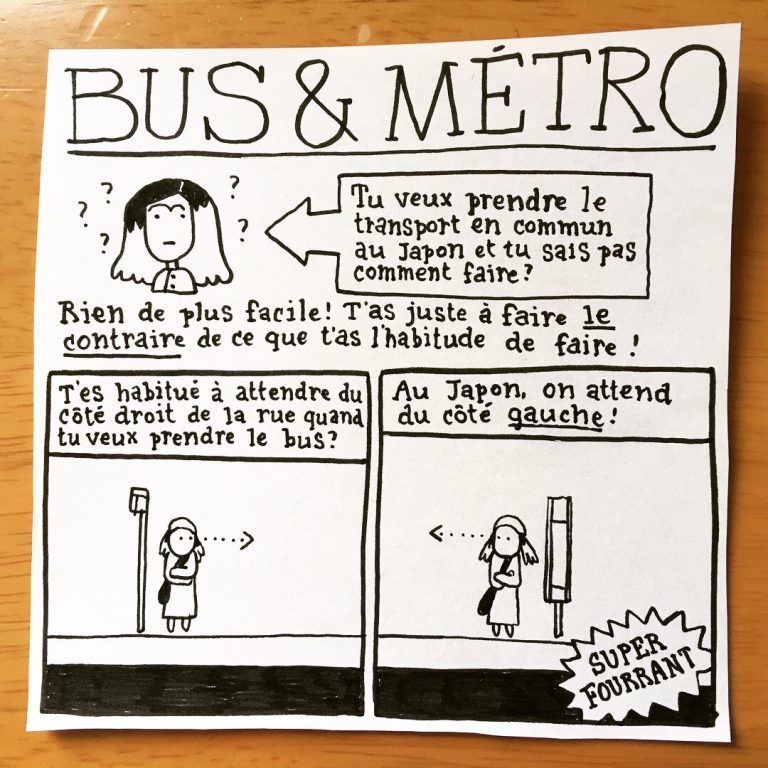 BUS & MÉTRO
? ? ? ? ?
Tu veux prendre le
transport en commun
au Japon et tu sais pas
comment faire?
Rien de plus facile! T'as juste à faire le
contraire de ce que t'as l'habitude de faire!
T'es habitué à attendre du
côté droit de la rue quand
tu veux prendre le bus?
Au Japon, on attend
du côté gauche!
SUPER
FOURRANT